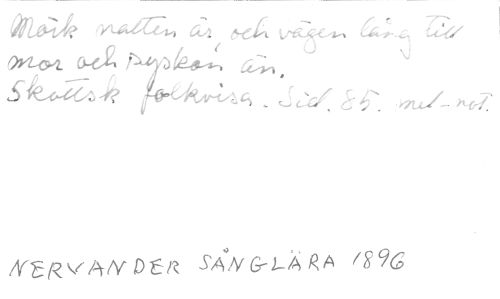 Mörk natten är, och vägen lång till
mor och syskon än.
Skottsk folkvisa. Sid. 85. mel-not.
NERVANDER SÅNGLÄRA 1896